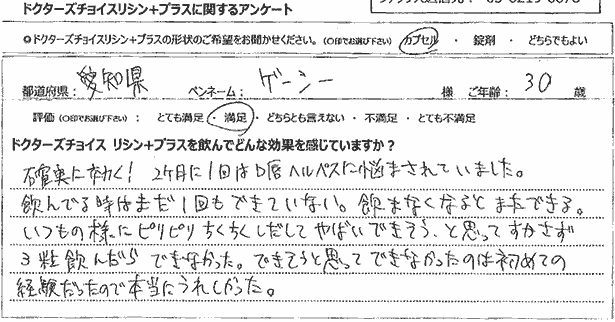 ドクターズチョイスリシン+プラスに関するアンケート
○ドクターズチョイスリシン+プラスの形状のご希望をお聞かせください。(○印でお選び下さい) カプセル ・ 錠剤 ・ どちらでもよい
都道府県: 愛知県 ペンネーム: ゲーシー 様 ご年齢: 30 歳
評価(○印でお選び下さい): とても満足 ・ 満足 ・ どちらとも言えない ・ 不満足 ・ とても不満足
ドクターズチョイス リシン+プラスを飲んでどんな効果を感じていますか?
確実に効く! 2ヶ月に1回は口唇ヘルペスに悩まされていました。
飲んでる時はまだ1回もできていない。飲まなくなるとまたできる。
いつもの様にピリピリちくちくしだしてやばいできそう、と思ってすかさず
3粒飲んだらできなかった。できそうと思ってできなかったのは初めての
経験だったので本当にうれしかった。